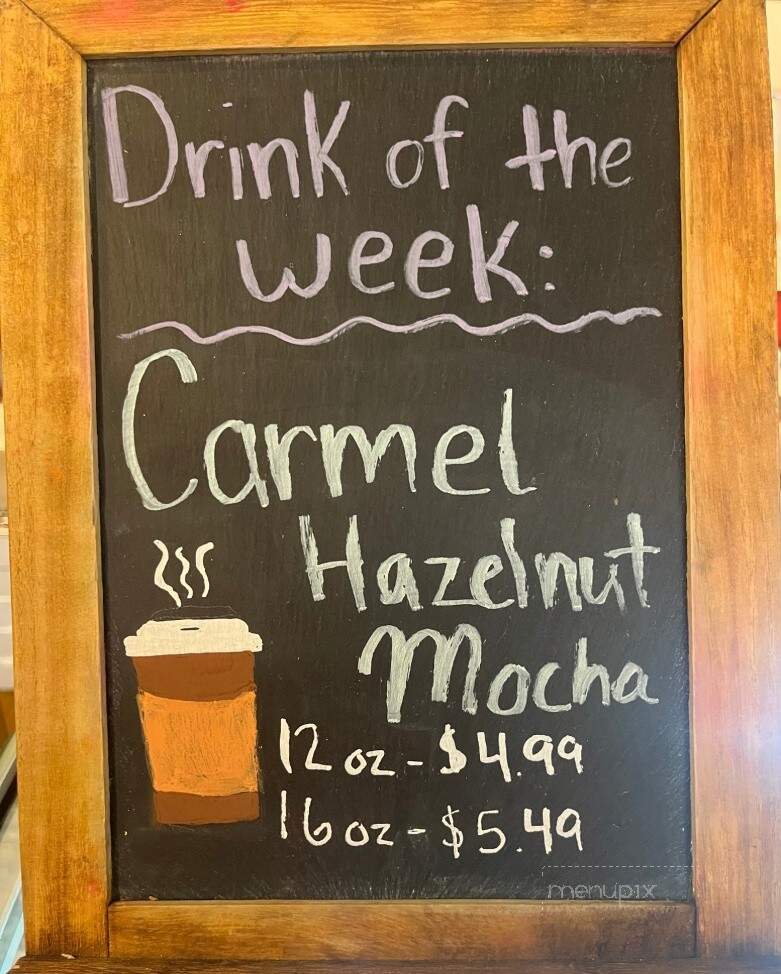 Drink of the
week:
Carmel
Hazelnut
Mocha
12 oz - $4.99
16 oz - $5.49
menupix